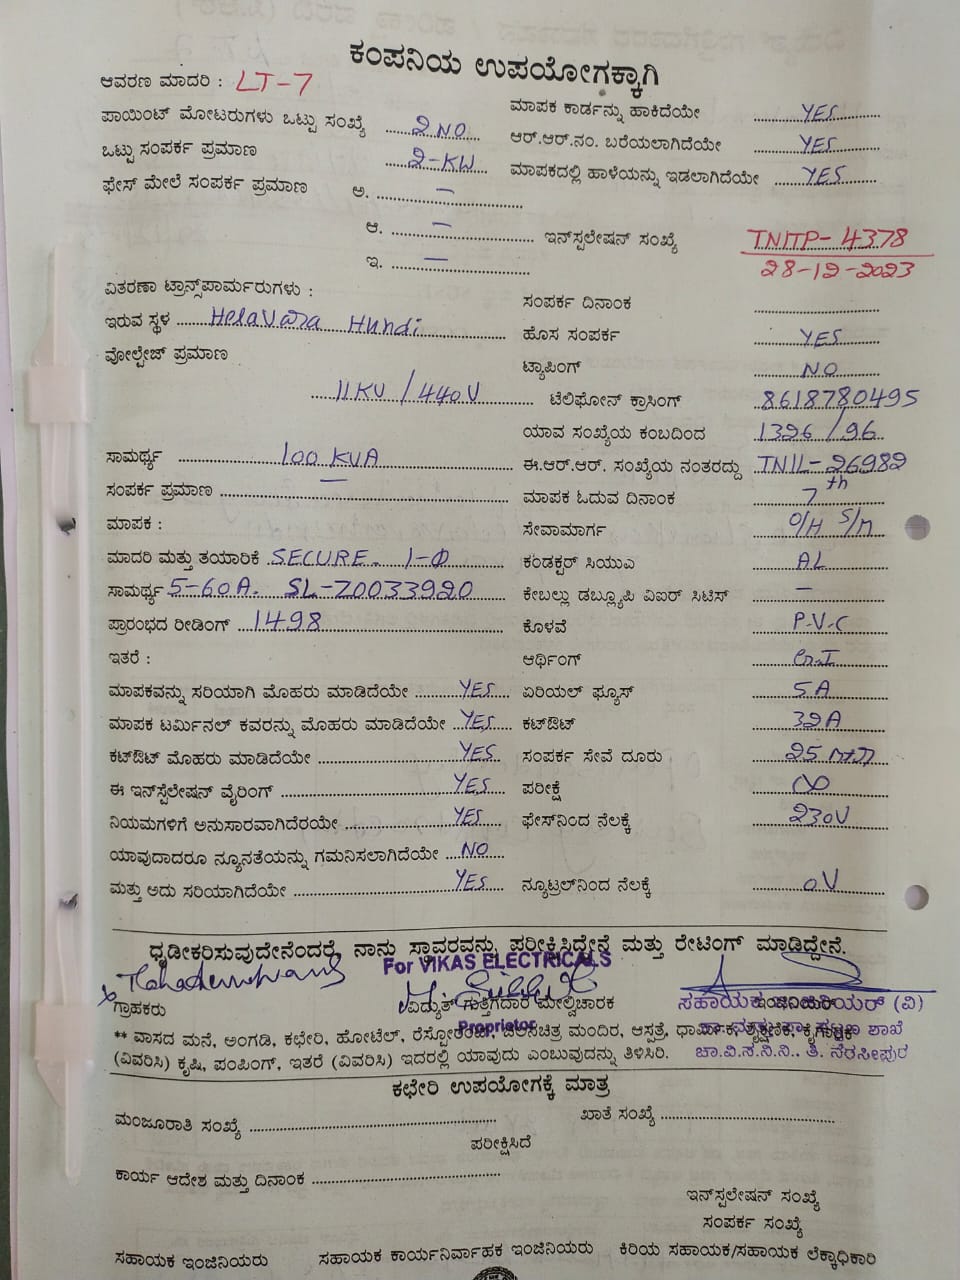 ಕಂಪನಿಯ ಉಪಯೋಗಕ್ಕಾಗಿ
ಆವರಣ ಮಾದರಿ : LT-7
ಮಾಪಕ ಕಾರ್ಡನ್ನು ಹಾಕಿದೆಯೇ YES
ಪಾಯಿಂಟ್ ಮೋಟರುಗಳು ಒಟ್ಟು ಸಂಖ್ಯೆ 2 NO
ಆರ್.ಆರ್.ನಂ. ಬರೆಯಲಾಗಿದೆಯೇ YES
ಒಟ್ಟು ಸಂಪರ್ಕ ಪ್ರಮಾಣ 2-KW
ಮಾಪಕದಲ್ಲಿ ಹಾಳೆಯನ್ನು ಇಡಲಾಗಿದೆಯೇ YES
ಫೇಸ್ ಮೇಲೆ ಸಂಪರ್ಕ ಪ್ರಮಾಣ ಅ. —
ಆ. — ಇನ್‌ಸ್ಪಲೇಷನ್ ಸಂಖ್ಯೆ TNITP-4378
ಇ. — 28-12-2023
ವಿತರಣಾ ಟ್ರಾನ್ಸ್‌ಪಾರ್ಮರುಗಳು :
ಸಂಪರ್ಕ ದಿನಾಂಕ
ಇರುವ ಸ್ಥಳ Helavara Hundi
ಹೊಸ ಸಂಪರ್ಕ YES
ವೋಲ್ಟೇಜ್ ಪ್ರಮಾಣ
ಟ್ಯಾಪಿಂಗ್ NO
11KV/440V
ಟೆಲಿಫೋನ್ ಕ್ರಾಸಿಂಗ್ 8618780495
ಯಾವ ಸಂಖ್ಯೆಯ ಕಂಬದಿಂದ 1326/96
ಸಾಮರ್ಥ್ಯ 100 KVA
ಈ.ಆರ್.ಆರ್. ಸಂಖ್ಯೆಯ ನಂತರದ್ದು TNIL-26982
ಸಂಪರ್ಕ ಪ್ರಮಾಣ —
ಮಾಪಕ ಓದುವ ದಿನಾಂಕ 7th
ಮಾಪಕ :
ಸೇವಾಮಾರ್ಗ O/H S/M
ಮಾದರಿ ಮತ್ತು ತಯಾರಿಕೆ SECURE. 1-Φ
ಕಂಡಕ್ಟರ್ ಸಿಯುಎ AL
ಸಾಮರ್ಥ್ಯ 5-60A. SL-Z0033920
ಕೇಬಲ್ಲು ಡಬ್ಲ್ಯೂಪಿ ವಿಐರ್ ಸಿಟಿಸ್ —
ಪ್ರಾರಂಭದ ರೀಡಿಂಗ್ 1498
ಕೊಳವೆ P.V.C
ಇತರೆ :
ಆರ್ಥಿಂಗ್ G.I
ಮಾಪಕವನ್ನು ಸರಿಯಾಗಿ ಮೊಹರು ಮಾಡಿದೆಯೇ YES
ಏರಿಯಲ್ ಫ್ಯೂಸ್ 5A
ಮಾಪಕ ಟರ್ಮಿನಲ್ ಕವರನ್ನು ಮೊಹರು ಮಾಡಿದೆಯೇ YES
ಕಟ್‌ಔಟ್ 32A
ಕಟ್‌ಔಟ್ ಮೊಹರು ಮಾಡಿದೆಯೇ YES
ಸಂಪರ್ಕ ಸೇವೆ ದೂರು 25
ಈ ಇನ್‌ಸ್ಪೆಲೇಷನ್ ವೈರಿಂಗ್ YES
ಪರೀಕ್ಷೆ ∞
ನಿಯಮಗಳಿಗೆ ಅನುಸಾರವಾಗಿದೆರಯೇ YES
ಫೇಸ್‌ನಿಂದ ನೆಲಕ್ಕೆ 230V
ಯಾವುದಾದರೂ ನ್ಯೂನತೆಯನ್ನು ಗಮನಿಸಲಾಗಿದೆಯೇ NO
ಮತ್ತು ಅದು ಸರಿಯಾಗಿದೆಯೇ YES
ನ್ಯೂಟ್ರಲ್‌ನಿಂದ ನೆಲಕ್ಕೆ 0V
ಧೃಡೀಕರಿಸುವುದೇನೆಂದರೆ, ನಾನು ಸ್ಥಾವರವನ್ನು ಪರೀಕ್ಷಿಸಿದ್ದೇನೆ ಮತ್ತು ರೇಟಿಂಗ್ ಮಾಡಿದ್ದೇನೆ.
For VIKAS ELECTRICALS
ಗ್ರಾಹಕರು ವಿದ್ಯುತ್ ಗುತ್ತಿಗೆದಾರ ಮೇಲ್ವಿಚಾರಕ ಸಹಾಯಕ ಇಂಜಿನಿಯರ್ (ವಿ)
Proprietor
** ವಾಸದ ಮನೆ, ಅಂಗಡಿ, ಕಛೇರಿ, ಹೋಟೆಲ್, ರೆಸ್ಟೋರೆಂಟ್, ಚಲನಚಿತ್ರ ಮಂದಿರ, ಆಸ್ಪತ್ರೆ, ಶಾಖೆ
(ವಿವರಿಸಿ) ಕೃಷಿ, ಪಂಪಿಂಗ್, ಇತರೆ (ವಿವರಿಸಿ) ಇದರಲ್ಲಿ ಯಾವುದು ಎಂಬುವುದನ್ನು ತಿಳಿಸಿರಿ. ಚಾ.ವಿ.ಸ.ನಿ.ನಿ., ತಿ. ನರಸೀಪುರ
ಕಛೇರಿ ಉಪಯೋಗಕ್ಕೆ ಮಾತ್ರ
ಮಂಜೂರಾತಿ ಸಂಖ್ಯೆ ಖಾತೆ ಸಂಖ್ಯೆ
ಪರೀಕ್ಷಿಸಿದೆ
ಕಾರ್ಯ ಆದೇಶ ಮತ್ತು ದಿನಾಂಕ
ಇನ್‌ಸ್ಪಲೇಷನ್ ಸಂಖ್ಯೆ
ಸಂಪರ್ಕ ಸಂಖ್ಯೆ
ಸಹಾಯಕ ಇಂಜಿನಿಯರು ಸಹಾಯಕ ಕಾರ್ಯನಿರ್ವಾಹಕ ಇಂಜಿನಿಯರು ಕಿರಿಯ ಸಹಾಯಕ/ಸಹಾಯಕ ಲೆಕ್ಕಾಧಿಕಾರಿ